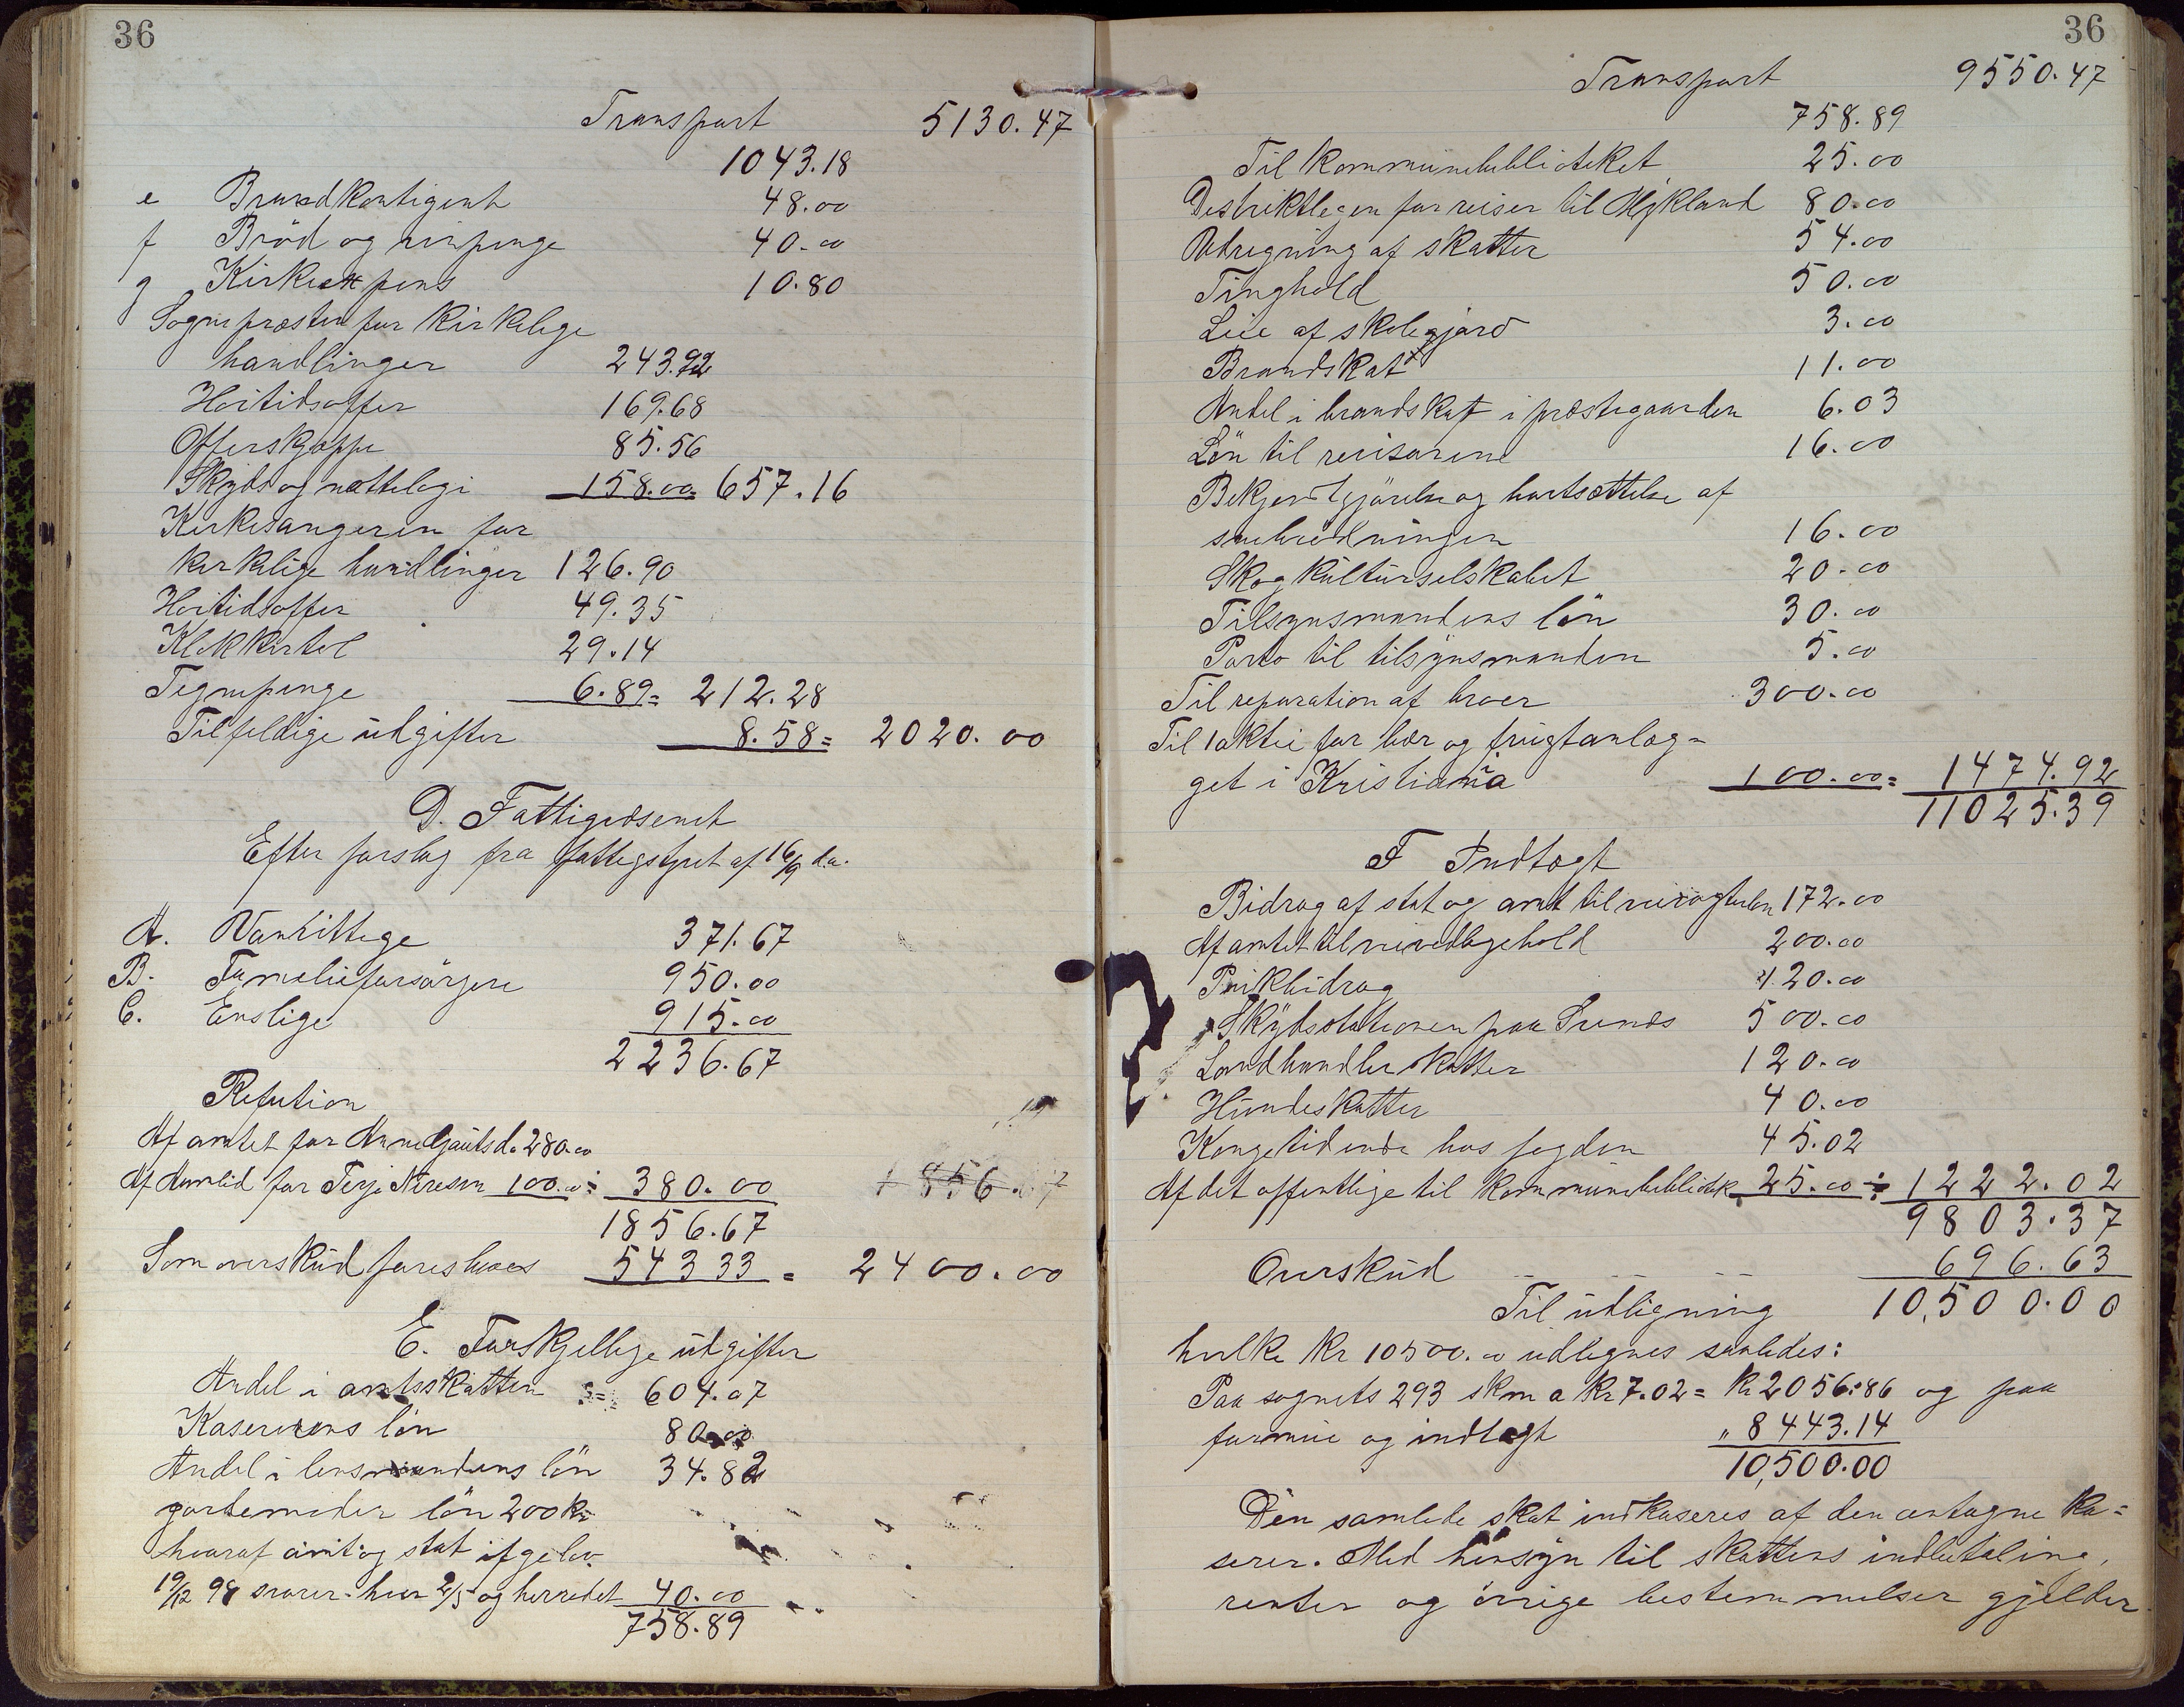 36
Transport 5130.47
1043.18
e Brandkontigent 48.00
f Bröd og vinpenge 40.00
g Kirkeexpens 10.80
Sognepræsten for kirkelige
handlinger 243.92
Hoitidsoffer 169.68
Offerskjæppe 85.56
Skyds og nattelogi 158.00 = 657.16
Kirkesangeren for
kirkelige handlinger 126.90
Hoitidsoffer 49.35
Klokkertol 29.14
Tegnepenge 6.89 = 212.28
Tilfeldige udgifter 8.58 = 2020.00
D. Fattigvæsenet
Efter forslag fra fattigstyret af 16/9 da.
A. Vanvittige 371.67
B. Familieforsörgere 950.00
C. Enslige 915.00
2236.67
Refution
Af amtet for Anne Gjautsd. 280.00
Af Aamlid for Terje Nireson 100.00 ÷ 380.00 1856.67
1856.67
Som overskud foreslaaes 543 33 = 2400.00
E. Forskjellige udgifter
Andel i amtsskatten 604.07
Kasererens lön 80.00
Andel i lensmandens lön 34.82
jordemoder lön 200 Kr
hvoraf amt og stat ifg. lov
19/12 98 svarer hver 2/5 og herredet 40.00
758.89
36
Transport 9550.47
758.89
Til kommunebiblioteket 25.00
Distriktlegen for reiser til Mykland 80.00
Udregning af skatter 54.00
Tinghold 50.00
Leie af skolegjord 3.00
Brandskat 11.00
Andel i brandskat i præstegaarden 6.03
Lön til revisorene 16.00
Bekjendtgjörelse og bortsættelse af
snebrödningen 16.00
Skogkulturselskabet 20.00
Tilsynsmandens lön 30.00
Porto til tilsynsmanden 5.00
Til reparation af broer 300.00
Til 1 aktie for bær og frugtanlæg-
get i Kristiania 100.00 = 1474.92
11025.39
F Indtægt
Bidrag af stat og amt til veivogteren 172.00
Af amtet til veivedligehold 200.00
120.00
Skydsstationen paa Sunds 500.00
Landhandlerskatter 120.00
Hundeskatter 40.00
Kongetidende hos fogden 45.02
Af det offentlige til kommunebibliotek 25.00 ÷ 1222.02
9803.37
Overskud 696.63
Til udligning 10,500.00
hvilke Kr 10500.00 udlignes saaledes:
Paa sognets 293 skm a Kr 7.02 = Kr 2056.86 og paa
formue og indtægt " 8443.14
10,500.00
Den samlede skat indkaseres af den antagne ka=
serer. Med hensyn til skattens indbetaling,
renter og övrige bestemmelser gjelder